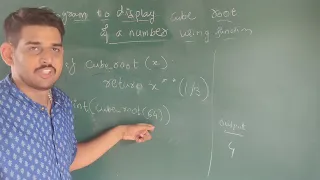 gram to display cube root
of a number using function
ef cuberoot (x):
return x**(1/3)
int(cuberoot(64))
output
4